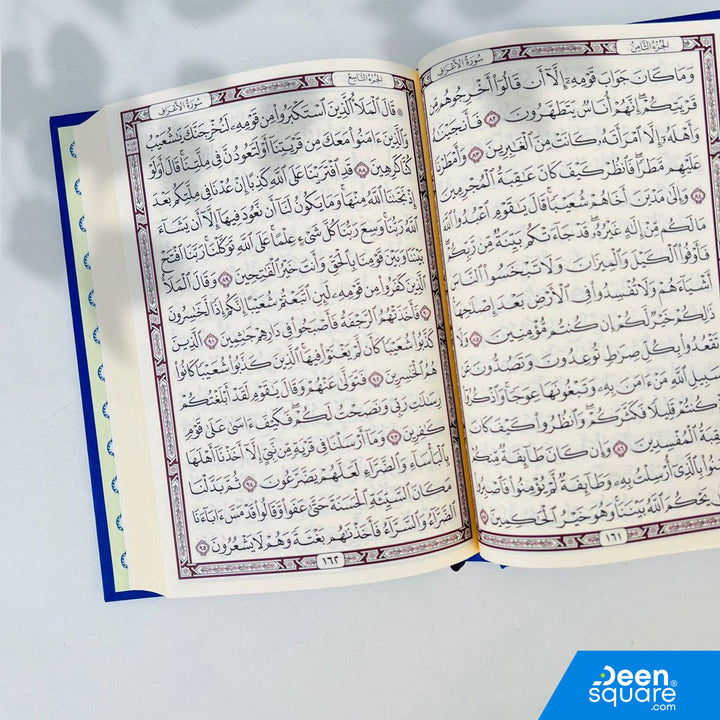 الجزء الثامن
سورة الأعراف
وَمَا كَانَ جَوَابَ قَوْمِهِۦٓ إِلَّآ أَن قَالُوٓا۟ أَخْرِجُوهُم مِّن
قَرْيَتِكُمْ إِنَّهُمْ أُنَاسٌ يَتَطَهَّرُونَ ٨٢ فَأَنجَيْنَٰهُ
وَأَهْلَهُۥٓ إِلَّا ٱمْرَأَتَهُۥ كَانَتْ مِنَ ٱلْغَٰبِرِينَ ٨٣ وَأَمْطَرْنَا
عَلَيْهِم مَّطَرًا فَٱنظُرْ كَيْفَ كَانَ عَٰقِبَةُ ٱلْمُجْرِمِينَ
٨٤ وَإِلَىٰ مَدْيَنَ أَخَاهُمْ شُعَيْبًا قَالَ يَٰقَوْمِ ٱعْبُدُوا۟ ٱللَّهَ
مَا لَكُم مِّنْ إِلَٰهٍ غَيْرُهُۥ قَدْ جَآءَتْكُم بَيِّنَةٌ مِّن رَّبِّكُمْ
فَأَوْفُوا۟ ٱلْكَيْلَ وَٱلْمِيزَانَ وَلَا تَبْخَسُوا۟ ٱلنَّاسَ
أَشْيَآءَهُمْ وَلَا تُفْسِدُوا۟ فِى ٱلْأَرْضِ بَعْدَ إِصْلَٰحِهَا
ذَٰلِكُمْ خَيْرٌ لَّكُمْ إِن كُنتُم مُّؤْمِنِينَ ٨٥ وَلَا
تَقْعُدُوا۟ بِكُلِّ صِرَٰطٍ تُوعِدُونَ وَتَصُدُّونَ عَن
سَبِيلِ ٱللَّهِ مَنْ ءَامَنَ بِهِۦ وَتَبْغُونَهَا عِوَجًا وَٱذْكُرُوٓا۟
إِذْ كُنتُمْ قَلِيلًا فَكَثَّرَكُمْ وَٱنظُرُوا۟ كَيْفَ كَانَ
عَٰقِبَةُ ٱلْمُفْسِدِينَ ٨٦ وَإِن كَانَ طَآئِفَةٌ مِّنكُمْ
ءَامَنُوا۟ بِٱلَّذِىٓ أُرْسِلْتُ بِهِۦ وَطَآئِفَةٌ لَّمْ يُؤْمِنُوا۟ فَٱصْبِرُوا۟
حَتَّىٰ يَحْكُمَ ٱللَّهُ بَيْنَنَا وَهُوَ خَيْرُ ٱلْحَٰكِمِينَ ٨٧
١٦١
الجزء التاسع
سورة الأعراف
۞ قَالَ ٱلْمَلَأُ ٱلَّذِينَ ٱسْتَكْبَرُوا۟ مِن قَوْمِهِۦ لَنُخْرِجَنَّكَ يَٰشُعَيْبُ
وَٱلَّذِينَ ءَامَنُوا۟ مَعَكَ مِن قَرْيَتِنَآ أَوْ لَتَعُودُنَّ فِى مِلَّتِنَا قَالَ أَوَلَوْ
كُنَّا كَٰرِهِينَ ٨٨ قَدِ ٱفْتَرَيْنَا عَلَى ٱللَّهِ كَذِبًا إِنْ عُدْنَا فِى مِلَّتِكُم بَعْدَ
إِذْ نَجَّىٰنَا ٱللَّهُ مِنْهَا وَمَا يَكُونُ لَنَآ أَن نَّعُودَ فِيهَآ إِلَّآ أَن يَشَآءَ
ٱللَّهُ رَبُّنَا وَسِعَ رَبُّنَا كُلَّ شَىْءٍ عِلْمًا عَلَى ٱللَّهِ تَوَكَّلْنَا رَبَّنَا ٱفْتَحْ
بَيْنَنَا وَبَيْنَ قَوْمِنَا بِٱلْحَقِّ وَأَنتَ خَيْرُ ٱلْفَٰتِحِينَ ٨٩ وَقَالَ ٱلْمَلَأُ
ٱلَّذِينَ كَفَرُوا۟ مِن قَوْمِهِۦ لَئِنِ ٱتَّبَعْتُمْ شُعَيْبًا إِنَّكُمْ إِذًا لَّخَٰسِرُونَ
٩٠ فَأَخَذَتْهُمُ ٱلرَّجْفَةُ فَأَصْبَحُوا۟ فِى دَارِهِمْ جَٰثِمِينَ ٩١ ٱلَّذِينَ
كَذَّبُوا۟ شُعَيْبًا كَأَن لَّمْ يَغْنَوْا۟ فِيهَا ٱلَّذِينَ كَذَّبُوا۟ شُعَيْبًا كَانُوا۟
هُمُ ٱلْخَٰسِرِينَ ٩٢ فَتَوَلَّىٰ عَنْهُمْ وَقَالَ يَٰقَوْمِ لَقَدْ أَبْلَغْتُكُمْ
رِسَٰلَٰتِ رَبِّى وَنَصَحْتُ لَكُمْ فَكَيْفَ ءَاسَىٰ عَلَىٰ قَوْمٍ
كَٰفِرِينَ ٩٣ وَمَآ أَرْسَلْنَا فِى قَرْيَةٍ مِّن نَّبِىٍّ إِلَّآ أَخَذْنَآ أَهْلَهَا
بِٱلْبَأْسَآءِ وَٱلضَّرَّآءِ لَعَلَّهُمْ يَضَّرَّعُونَ ٩٤ ثُمَّ بَدَّلْنَا
مَكَانَ ٱلسَّيِّئَةِ ٱلْحَسَنَةَ حَتَّىٰ عَفَوا۟ وَّقَالُوا۟ قَدْ مَسَّ ءَابَآءَنَا
ٱلضَّرَّآءُ وَٱلسَّرَّآءُ فَأَخَذْنَٰهُم بَغْتَةً وَهُمْ لَا يَشْعُرُونَ ٩٥
١٦٢
Deen
square®
.com